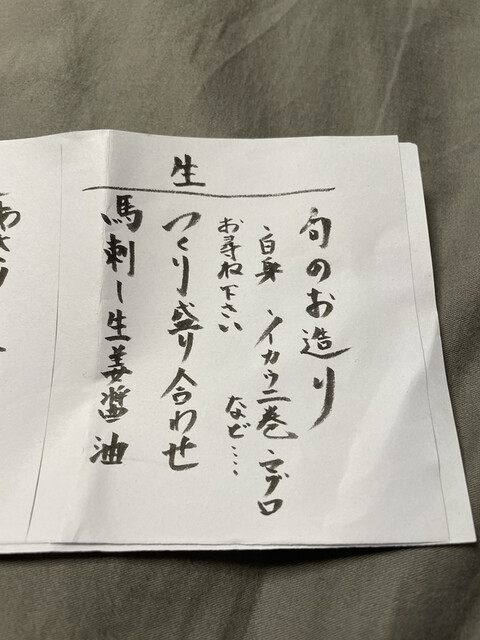 生
旬のお造り
・白身 ・イカウニ巻 ・マグロ
お尋ね下さい など....
つくり盛り合わせ
馬刺し生姜醤油